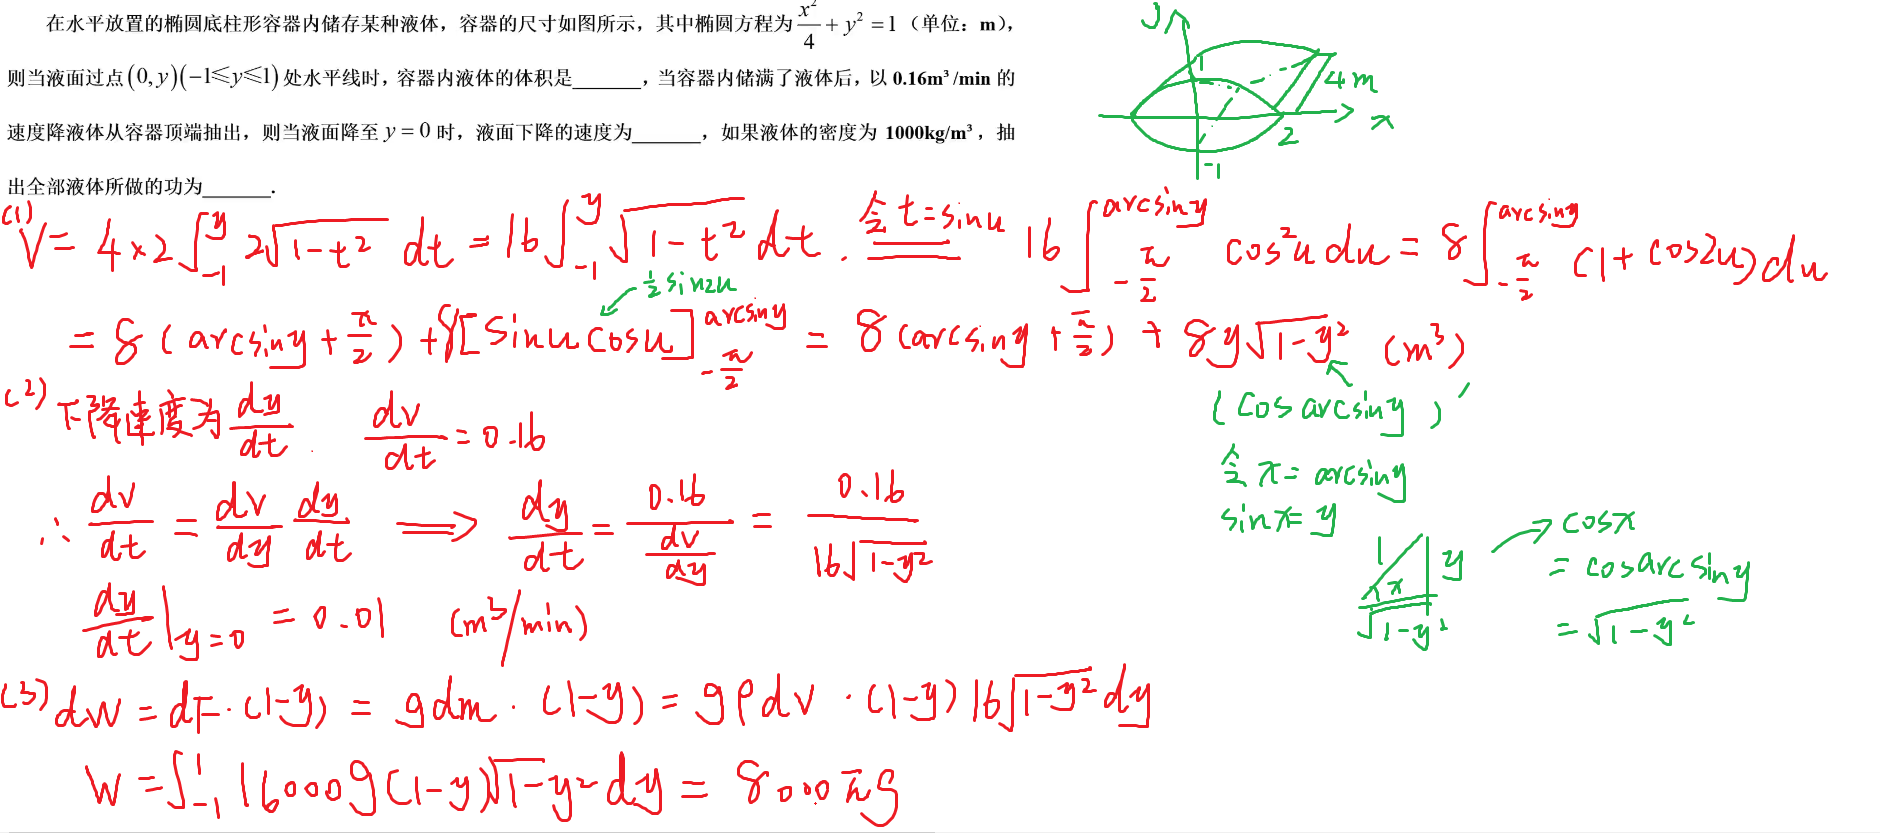 在水平放置的椭圆底柱形容器内储存某种液体，容器的尺寸如图所示，其中椭圆方程为 x²/4 + y² = 1（单位：m），
则当液面过点(0, y)(−1≤y≤1)处水平线时，容器内液体的体积是_______，当容器内储满了液体后，以 0.16m³/min 的
速度降液体从容器顶端抽出，则当液面降至 y = 0 时，液面下降的速度为_______，如果液体的密度为 1000kg/m³，抽
出全部液体所做的功为_______.
y
1
4m
x
2
-1
(1) V = 4×2∫_{-1}^{y} 2√(1-t²) dt = 16∫_{-1}^{y} √(1-t²) dt. 令t=sinu 16∫_{-π/2}^{arcsiny} cos²u du = 8∫_{-π/2}^{arcsiny} (1+cos2u)du
½sin2u
= 8(arcsiny+π/2)+8[sinucosu]_{-π/2}^{arcsiny} = 8(arcsiny+π/2) + 8y√(1-y²) (m³)
(cosarcsiny)'
(2) 下降速度为 dy/dt . dv/dt = 0.16
令x=arcsiny
sinx=y
∴ dv/dt = dv/dy dy/dt ⟹ dy/dt = 0.16/(dv/dy) = 0.16/(16√(1-y²))
1
y
x
√(1-y²)
cosx
= cosarcsiny
= √(1-y²)
dy/dt |_{y=0} = 0.01 (m³/min)
(3) dW = dF·(1-y) = gdm·(1-y) = gρdv·(1-y)16√(1-y²)dy
W = ∫_{-1}^{1} 16000g(1-y)√(1-y²)dy = 8000πg